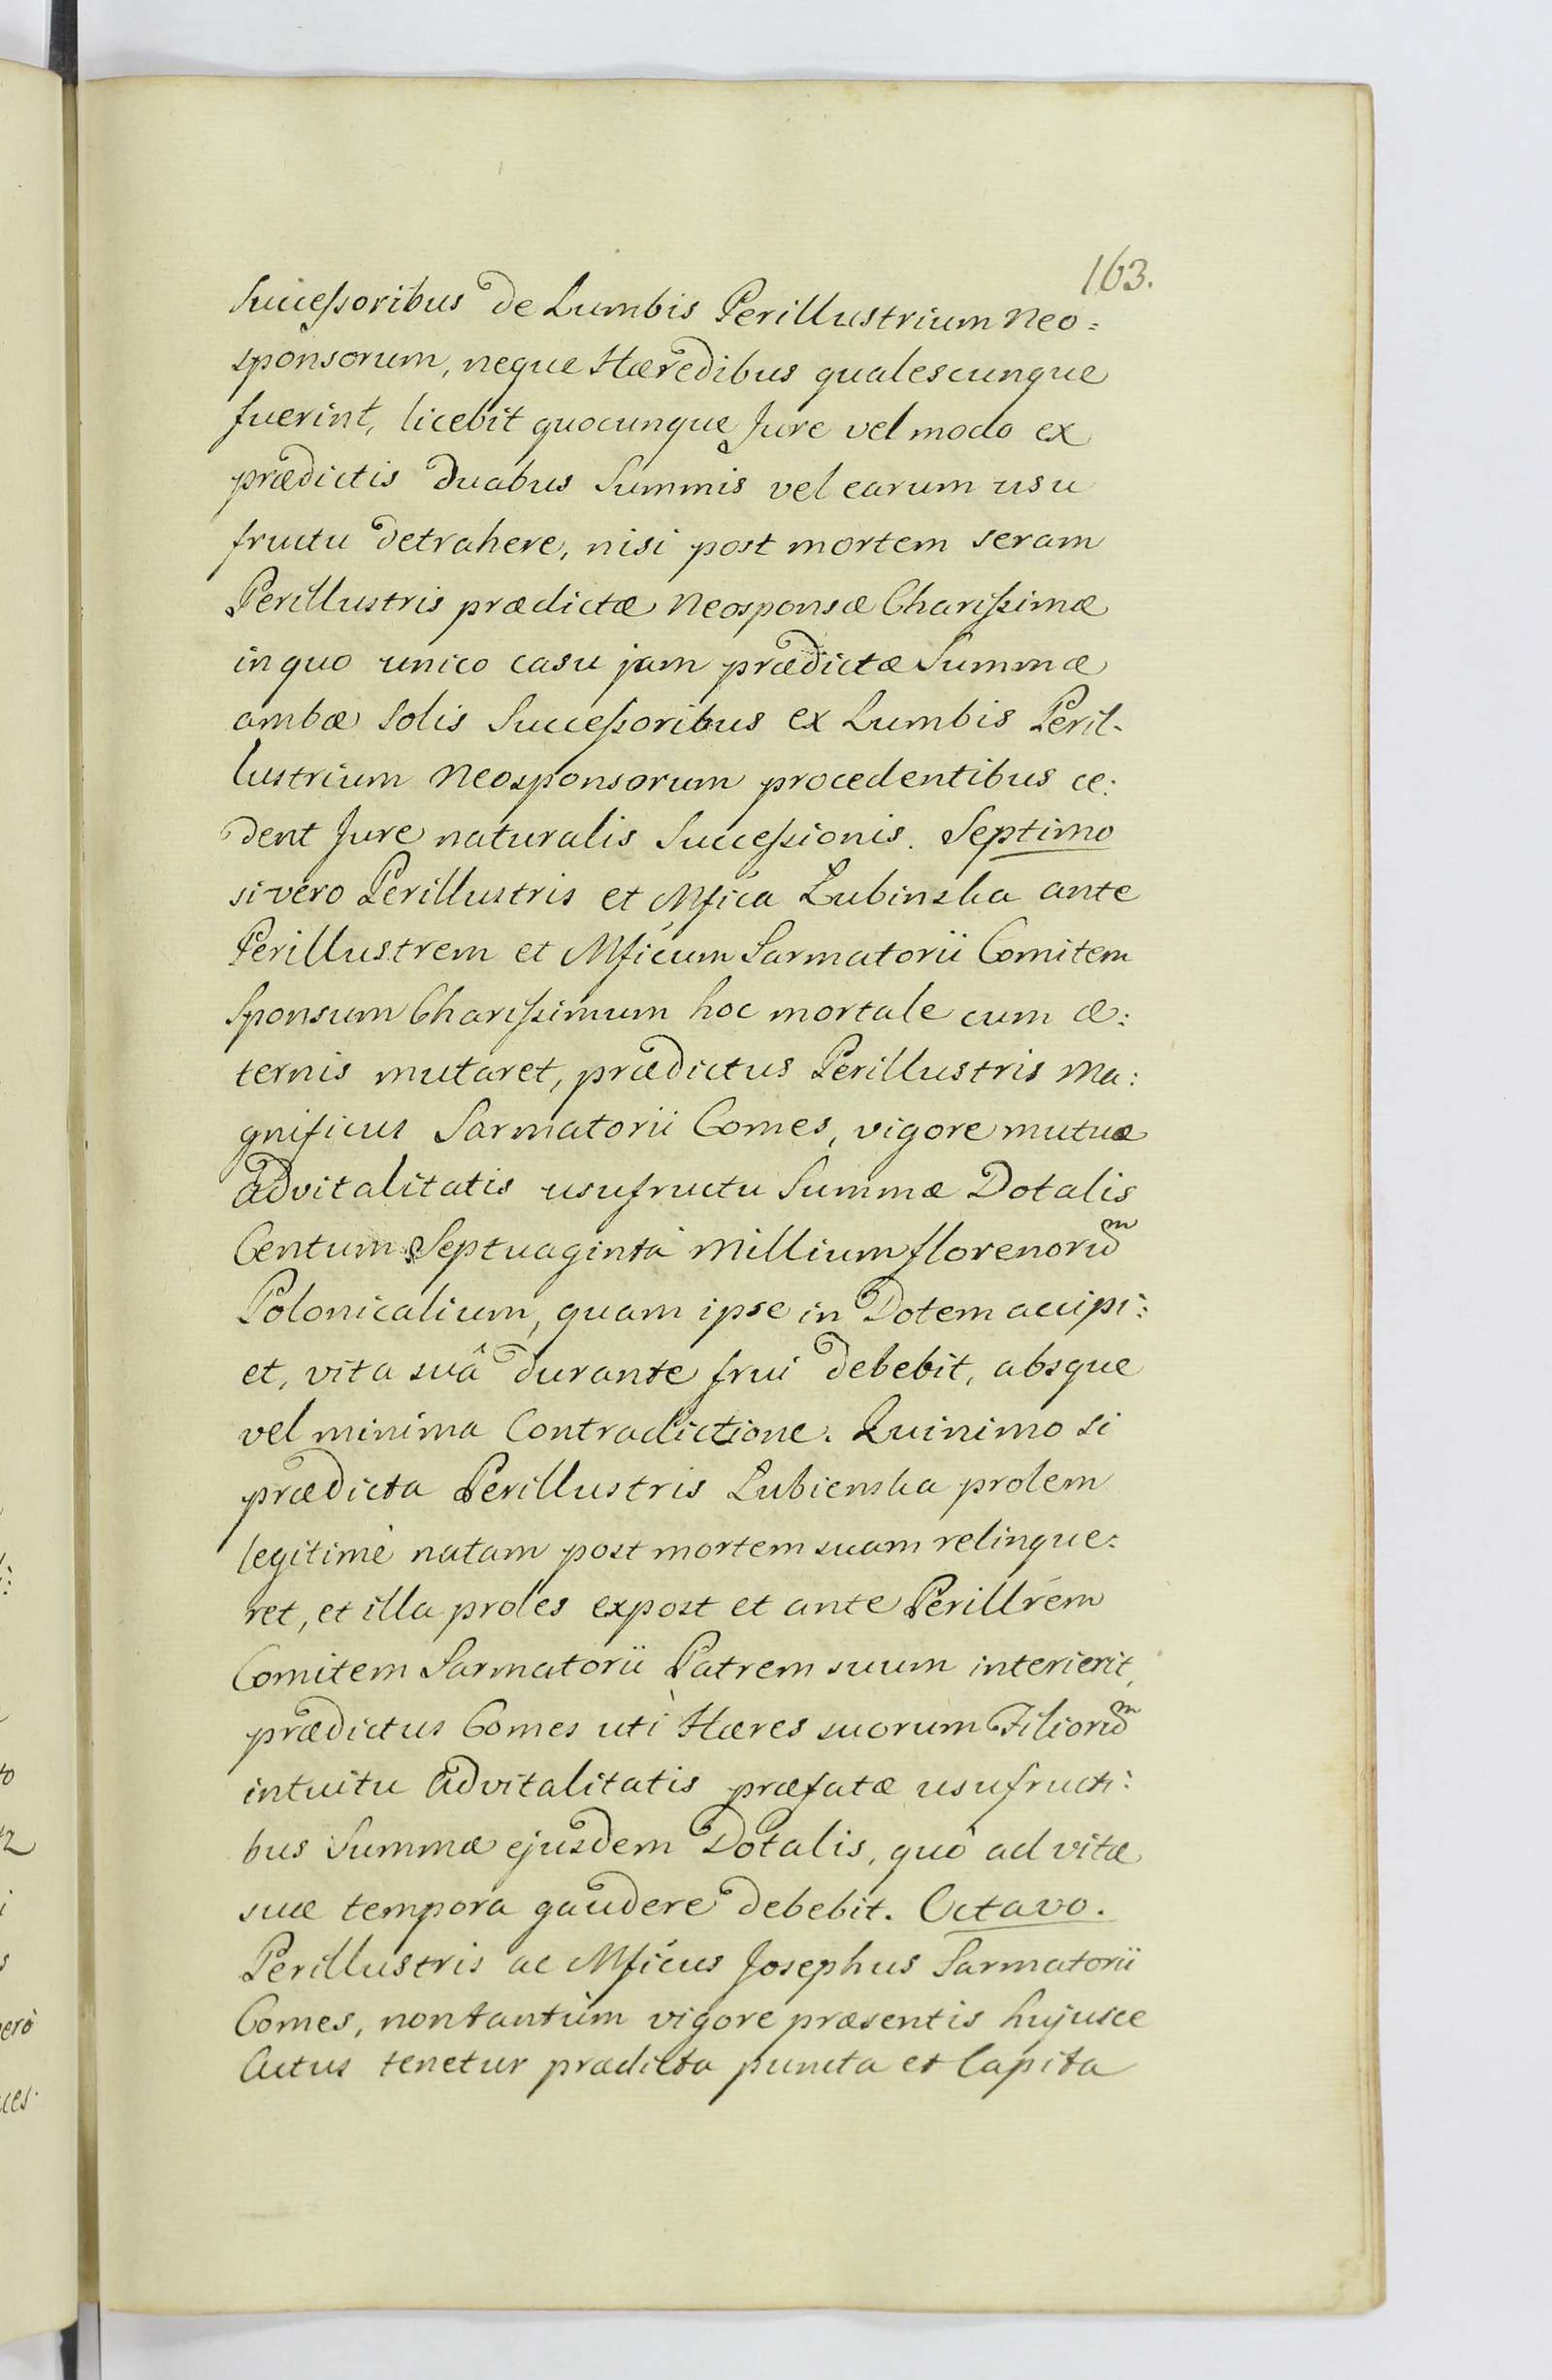 163.
Successoribus de Lumbis Perillustrium Neo=
sponsorum, neque Hæredibus qualescunque
fuerint, licebit quocunque Jure vel modo ex
prædictis duabus Summis vel earum usu
fructu detrahere, nisi post mortem seram
Perillustris prædictæ Neosponsæ Charissimæ
in quo unico casu jam prædictæ Summæ
ambæ solis Successoribus ex Lumbis Peril-
lustrium Neosponsorum procedentibus ce:
dent Jure naturalis Successionis. Septimo
si vero Perillustris et Mfica Lubinska ante
Perillustrem et Mficum Sarmatorii Comitem
Sponsum Charissimum hoc mortale cum æ:
ternis mutaret, prædictus Perillustris Ma:
gnificus Sarmatorii Comes, vigore mutuæ
advitalitatis usufructu Summæ Dotalis
Centum Septuaginta Millium florenorum
Polonicalium, quam ipse in Dotem accipi:
et, vita suâ durante frui debebit, absque
vel minima Contradictione. Quinimo si
prædicta Perillustris Lubienska prolem
legitimè natam post mortem suam relinque:
ret, et illa proles expost et ante Perillrem
Comitem Sarmatorii Patrem suum interierit,
prædictus Comes utì Hæres suorum Filiorum
intuitu advitalitatis præfatæ usufructi:
bus Summæ ejusdem Dotalis, quò ad vitæ
suæ tempora gaudere debebit. Octavo.
Perillustris ac Mficus Josephus Sarmatorii
Comes, non tantùm vigore præsentis hujusce
Actus tenetur prædicta puncta et Capita